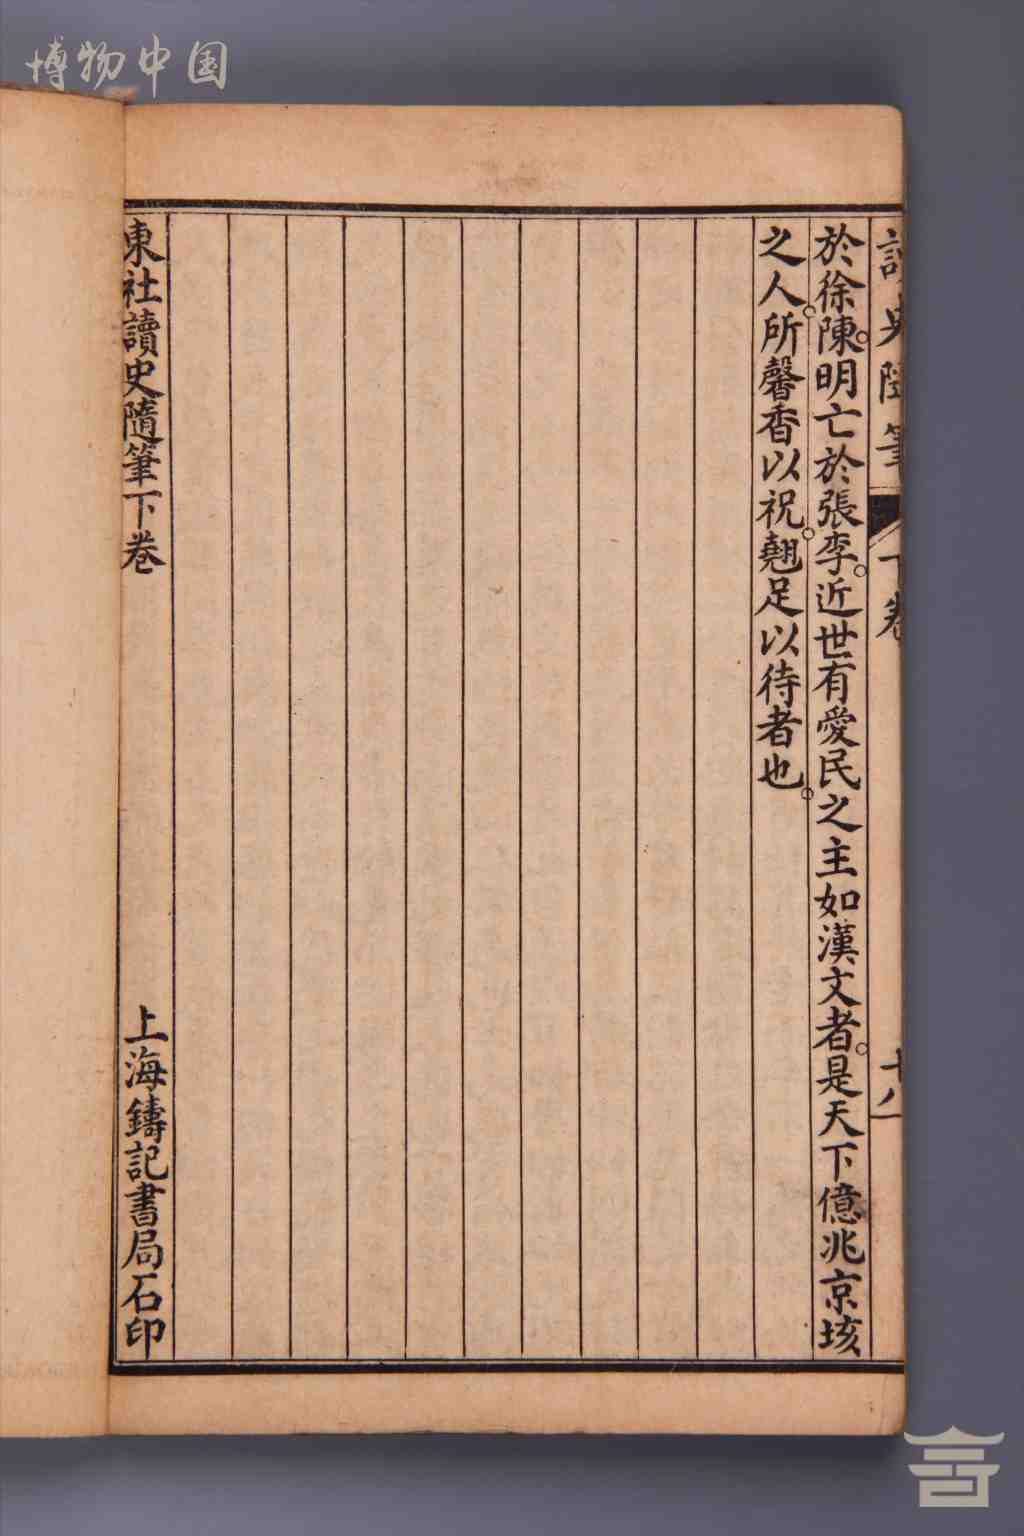 博物中国
讀史隨筆 下卷 十八
於徐陳。明亡於張李。近世有愛民之主如漢文者。是天下億兆京垓
之人。所馨香以祝。翹足以待者也。
東社讀史隨筆下卷 上海鑄記書局石印